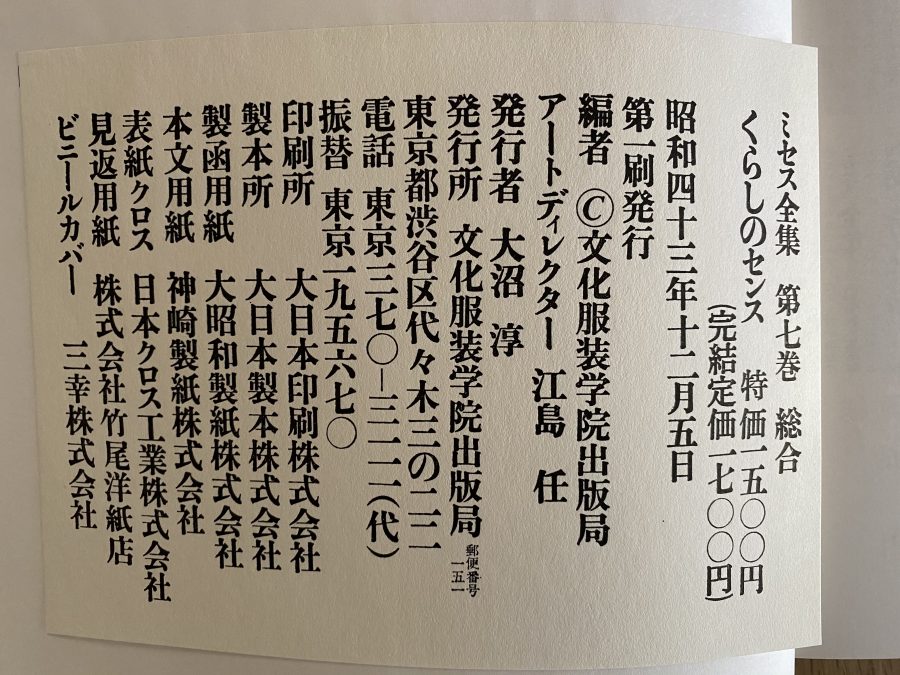 ミセス全集 第七巻 総合
くらしのセンス 特価一五〇〇円
(完結定価一七〇〇円)
昭和四十三年十二月五日
第一刷発行
編者 Ⓒ文化服装学院出版局
アートディレクター 江島 任
発行者 大沼 淳
発行所 文化服装学院出版局 郵便番号一五一
東京都渋谷区代々木三の二二
電話 東京三七〇―三一一一(代)
振替 東京一九五六七〇
印刷所 大日本印刷株式会社
製本所 大日本製本株式会社
製函用紙 大昭和製紙株式会社
本文用紙 神崎製紙株式会社
表紙クロス 日本クロス工業株式会社
見返用紙 株式会社竹尾洋紙店
ビニールカバー 三幸株式会社